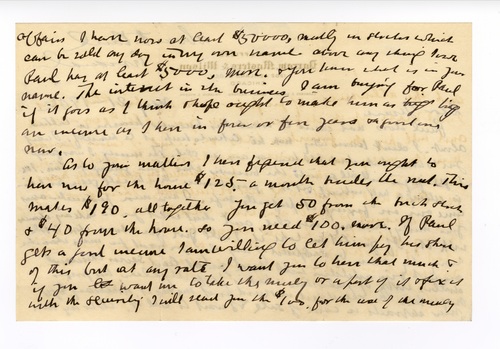 affairs I have now at least $50000, mostly in stocks which
can be sold any day in my own name above anything I owe
Paul has at least $5000, more. & you know what is in your
name. The interest in the business I am buying for Paul
if it goes as I think & hope ought to make him as big
an income as I have in four or five years
now.
As to your matters I have figured that you ought to
have now for the house $125- a month besides the rent. This
makes $190. all together You get 50 from the
& $40 from the house. so you need $100. more. If Paul
gets a good income I am willing to let him pay his share
of this but at any rate I want you to have that much &
if you want me to take the money or a part of it
with the security I will send you the $100. for the use of the money